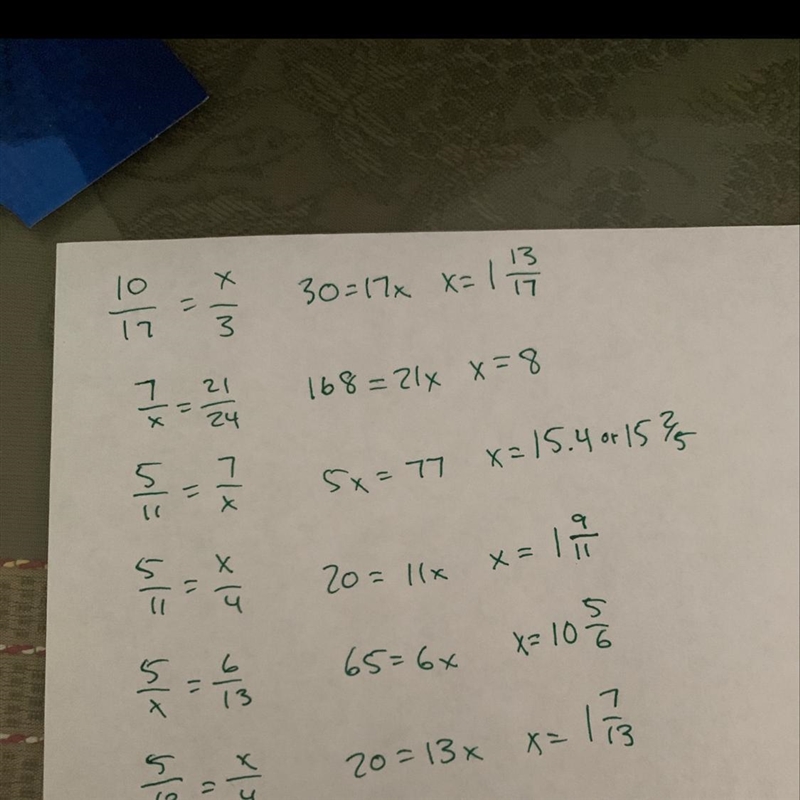 10/17 = x/3 30=17x x=1 13/17
7/x = 21/24 168=21x x=8
5/11 = 7/x 5x=77 x=15.4 or 15 2/5
5/11 = x/4 20=11x x=1 9/11
5/x = 6/13 65=6x x=10 5/6
5/ = x/4 20=13x x=1 7/13